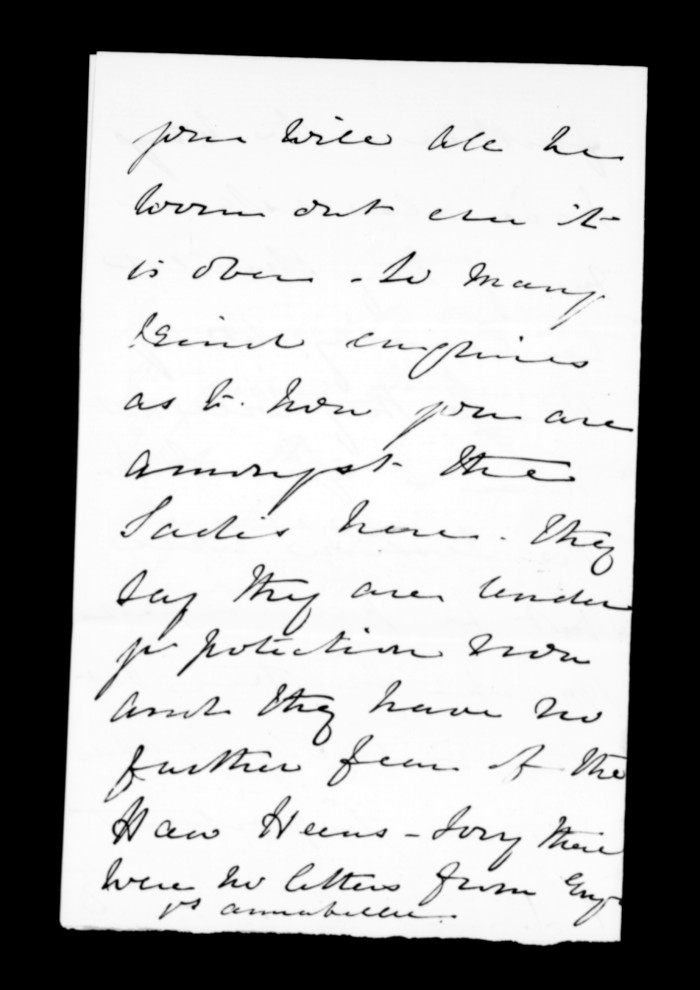 you will all be
worn out ere it
is over - So many
kind enquiries
as to how you are
amongst the
Ladies here. They
say they are under
yr protection now
and they have no
further fear of the
Haw Hews - Sorry there
were no letters from Eng
yr Annabella.